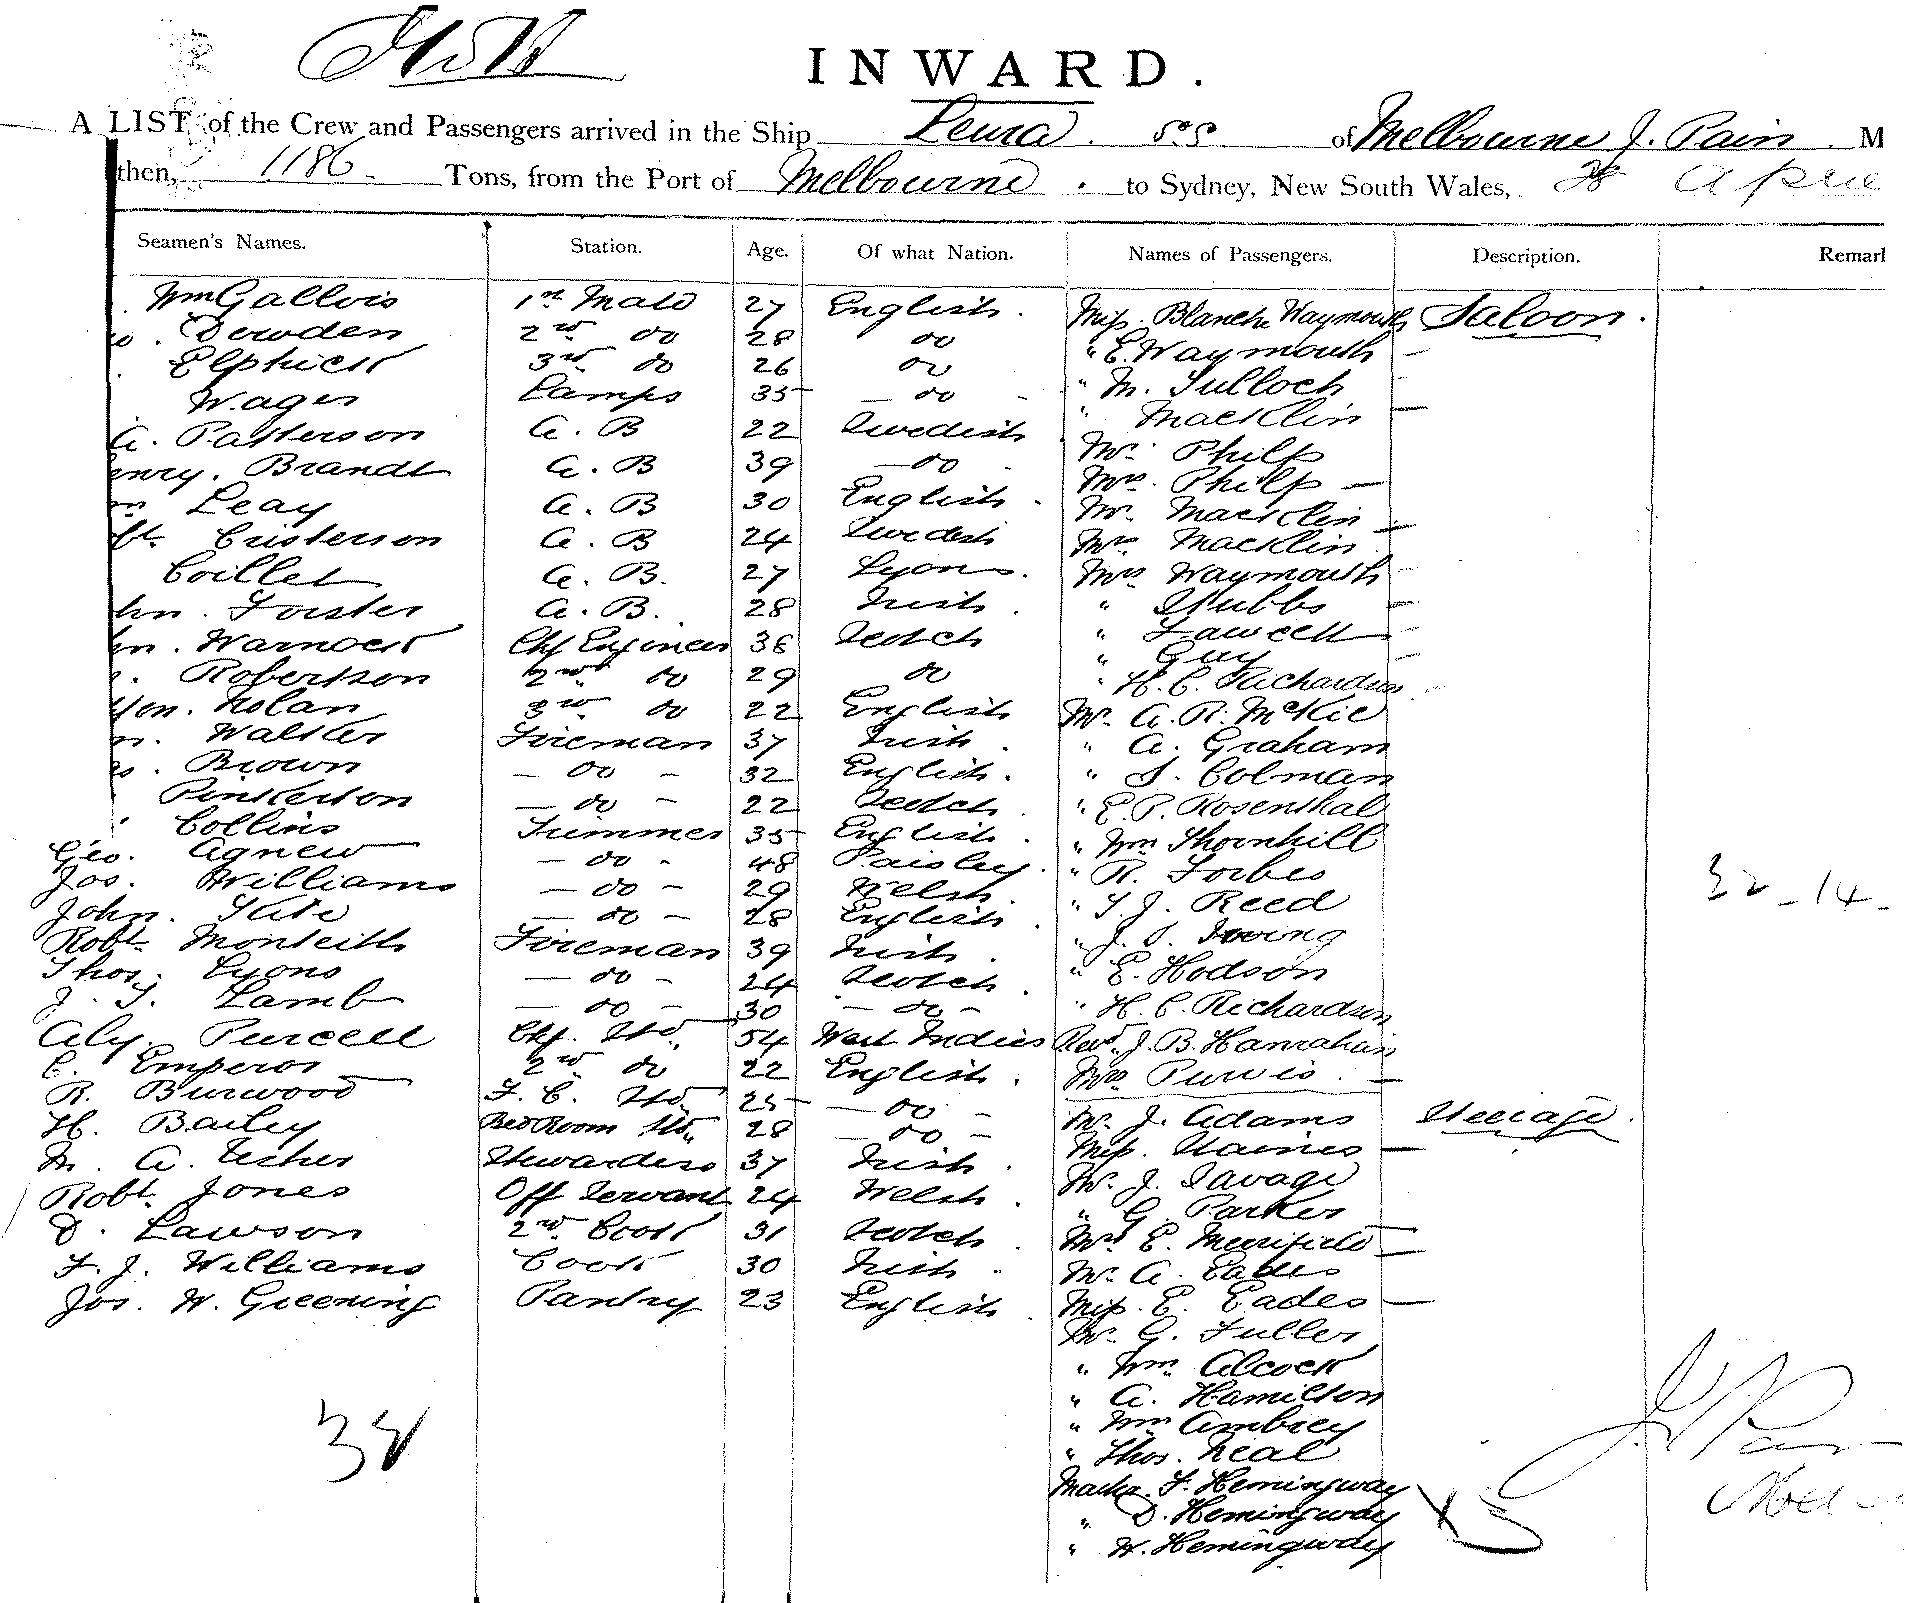 INWARD.
A LIST of the Crew and Passengers arrived in the Ship Leura S.S. of Melbourne J. Pain M
then, 1186 Tons, from the Port of Melbourne. to Sydney, New South Wales,
Seamen's Names. Station. Age. Of what Nation. Names of Passengers. Description. Remar
Wm Gallois 1st Mate 27 English. Miss. Blanche Waymouth Saloon.
Dowden 2nd do 28 do " E. Waymouth —
Elphick 3rd do 26 do " M. Tulloch
Wager Lamps 35 — do - " Macklin —
A. Patterson A. B 22 Swedish Mr. Philp
enry. Brandt A. B 39 — do Mrs. Philp —
Leay A. B 30 English. Mr. Macklin
Cristerson A. B 24 Swedish Mrs Macklin
Coillet A. B. 27 Lyons. Mrs Waymouth —
hn. Forster A. B. 28 Irish. " Stubbs —
hn. Warnock Chf Engineer 36 Scotch " Fawcett —
Robertson 2nd do 29 do " Guy —
Nolan 3rd do 22 English " H. C. Richardson
Walker Fireman 37 Irish. Mr. A. R. McKie
Brown — do — 32 English. " A. Graham
Pinkerton — do — 22 Scotch. " S. Colman
Collins Trimmer 35 English. " E. P. Rosenthal
Geo. Agnew — do - 48 Paisley. " Wm Thornhill
Jas. Williams — do — 29 Welsh. " R. Forbes
John. — do — 28 English. " T. J. Reed
Robt. Monteith Fireman 39 Irish. " Irving
Thos. Lyons — do — 24 Scotch. " E. Hodson
J. T. Lamb — do — 30 — do — " H. C. Richardson
Purcell Chf. Std. 54 West Indies Revd. J. B. Hanrahan
C. Emperor 2nd do 22 English. Mrs Purvis. —
R. Burwood F. C. Std. 25 — do — Mr. J. Adams Steerage.
H. Bailey Bed Room Std. 28 — do — Miss. Haines —
M. A. Usher Stewardess 37 Irish. Mr. J. Savage
Robt. Jones Off Servant 24 Welsh. " G. Parker
D. Lawson 2nd Cook 31 Scotch. Mrs E. Merrifield —
F. J. Williams Cook 30 Irish. Mr. A. Eades
Jos. W. Greening Pantry 23 English. Miss. E. Eades —
Mr. G. Fuller
" Wm. Alcock
" A. Hamilton
" Wm Ambrey
" Thos. Neal
F. Hemingway
" D. Hemingway
" W. Hemingway
32 - 14 -